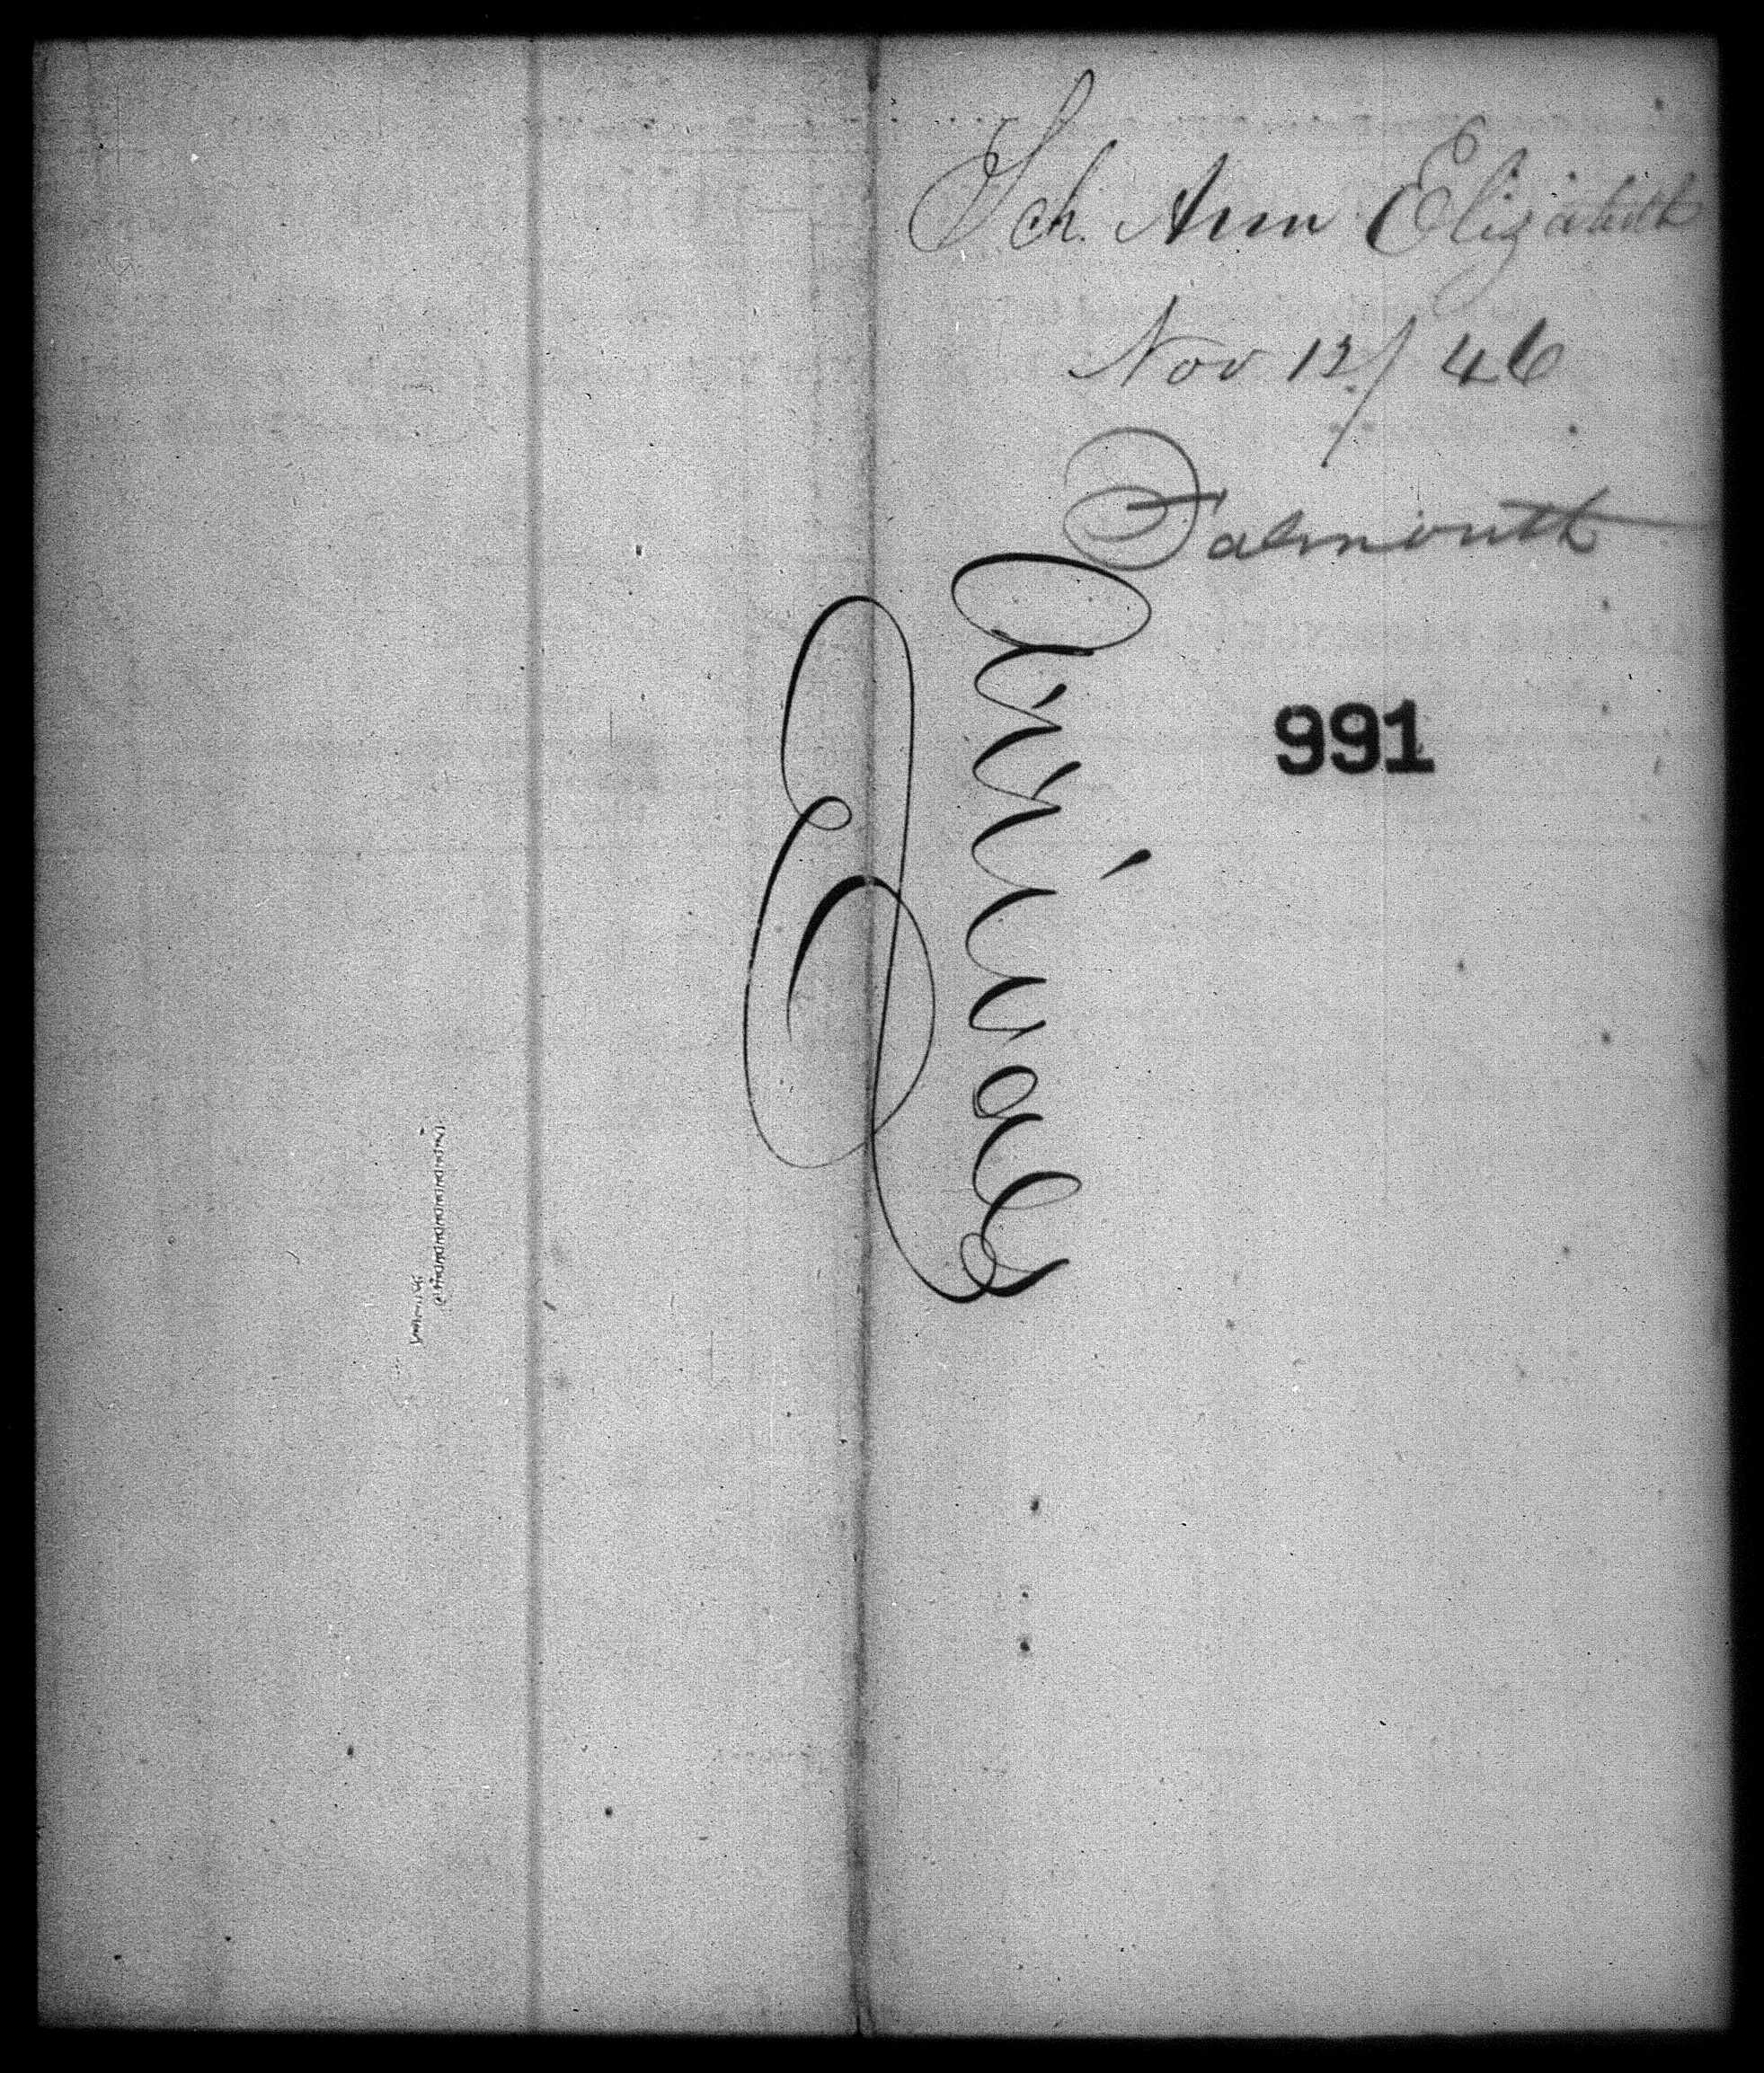 Sch. Ann Elizabeth
Nov 13/46
Falmouth
Arrivals
991